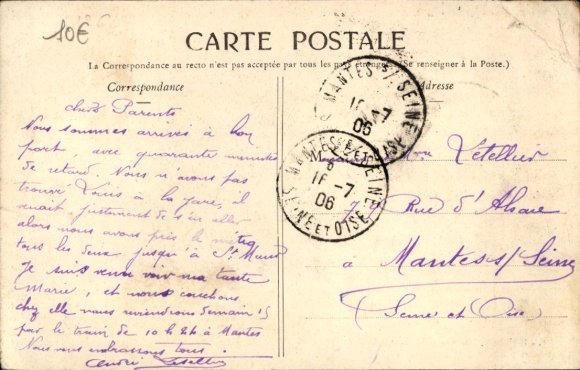 10€
CARTE POSTALE
La Correspondance au recto n'est pas acceptée par tous les pays étrangers (Se renseigner à la Poste.)
Correspondance
Adresse
chers Parents
Nous sommes arrivés à bon
port, avec quarante minutes
de retard. Nous n'avons pas
trouvé Louis à la gare, il
venait justement de s'en aller
alors nous avons pris le métro
tous les deux jusqu'à St Mandé
Je suis venu voir ma tante
Marie, et nous couchons
chez elle nous reviendrons demain
par le train de 10 h à Mantes
Nous vous embrassons tous.
André Letellier
MANTES S/ SEINE
16 -7
06
SEINE ET OISE
MANTES S/ SEINE
8
16 -7
06
SEINE ET OISE
M Létellier
Rue d'Alsace
à Mantes s/ Seine
Seine et Oise